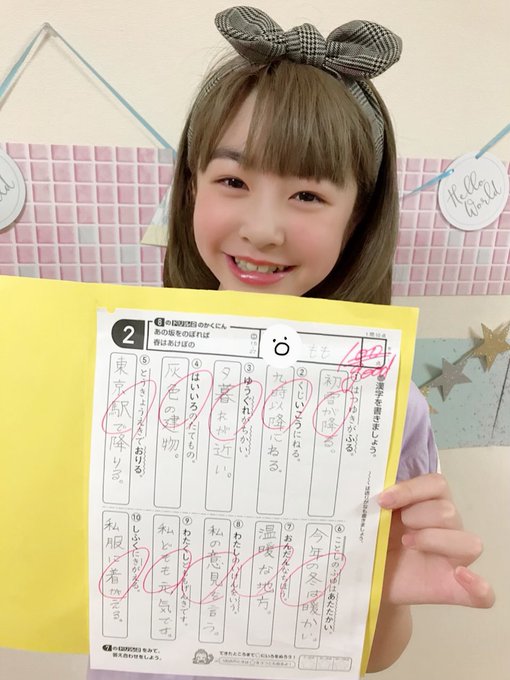 Hello World
2
のドリル②のかくにん
あの坂をのぼれば
春はあけぼの
1問10点
もも
100
Good
漢字を書きましょう。
はつゆきがふる。
初雪が降る。
② くじいこうにねる。
九時以降にねる。
③ ゆうぐれがちかい。
夕暮れが近い。
④ はいいろのたてもの。
灰色の建物。
⑤ とうきょうえきでおりる。
東京駅で降りる。
⑥ ことしのふゆはあたたかい。
今年の冬は暖かい。
⑦ おんだんなちほう。
温暖な地方。
⑧ わたしのいけんをいう。
私の意見を言う。
⑨ わたくしどももげんきです。
私どもも元気です。
⑩ しふくにきがえる。
私服に着がえる。
7のドリル②をみて、
答え合わせをしよう。